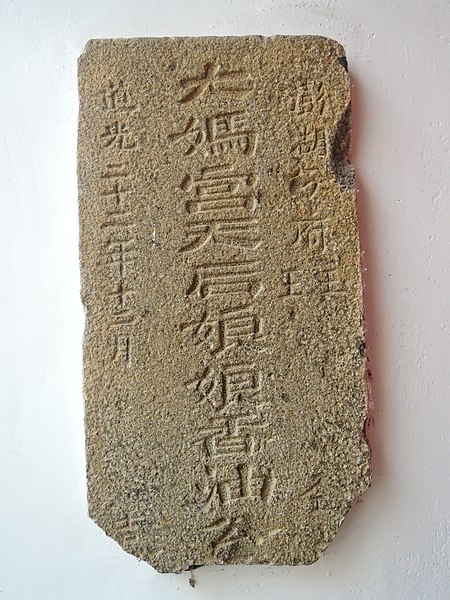 澎湖分府
大媽宮天后娘娘香油公
道光二十二年十二月 吉